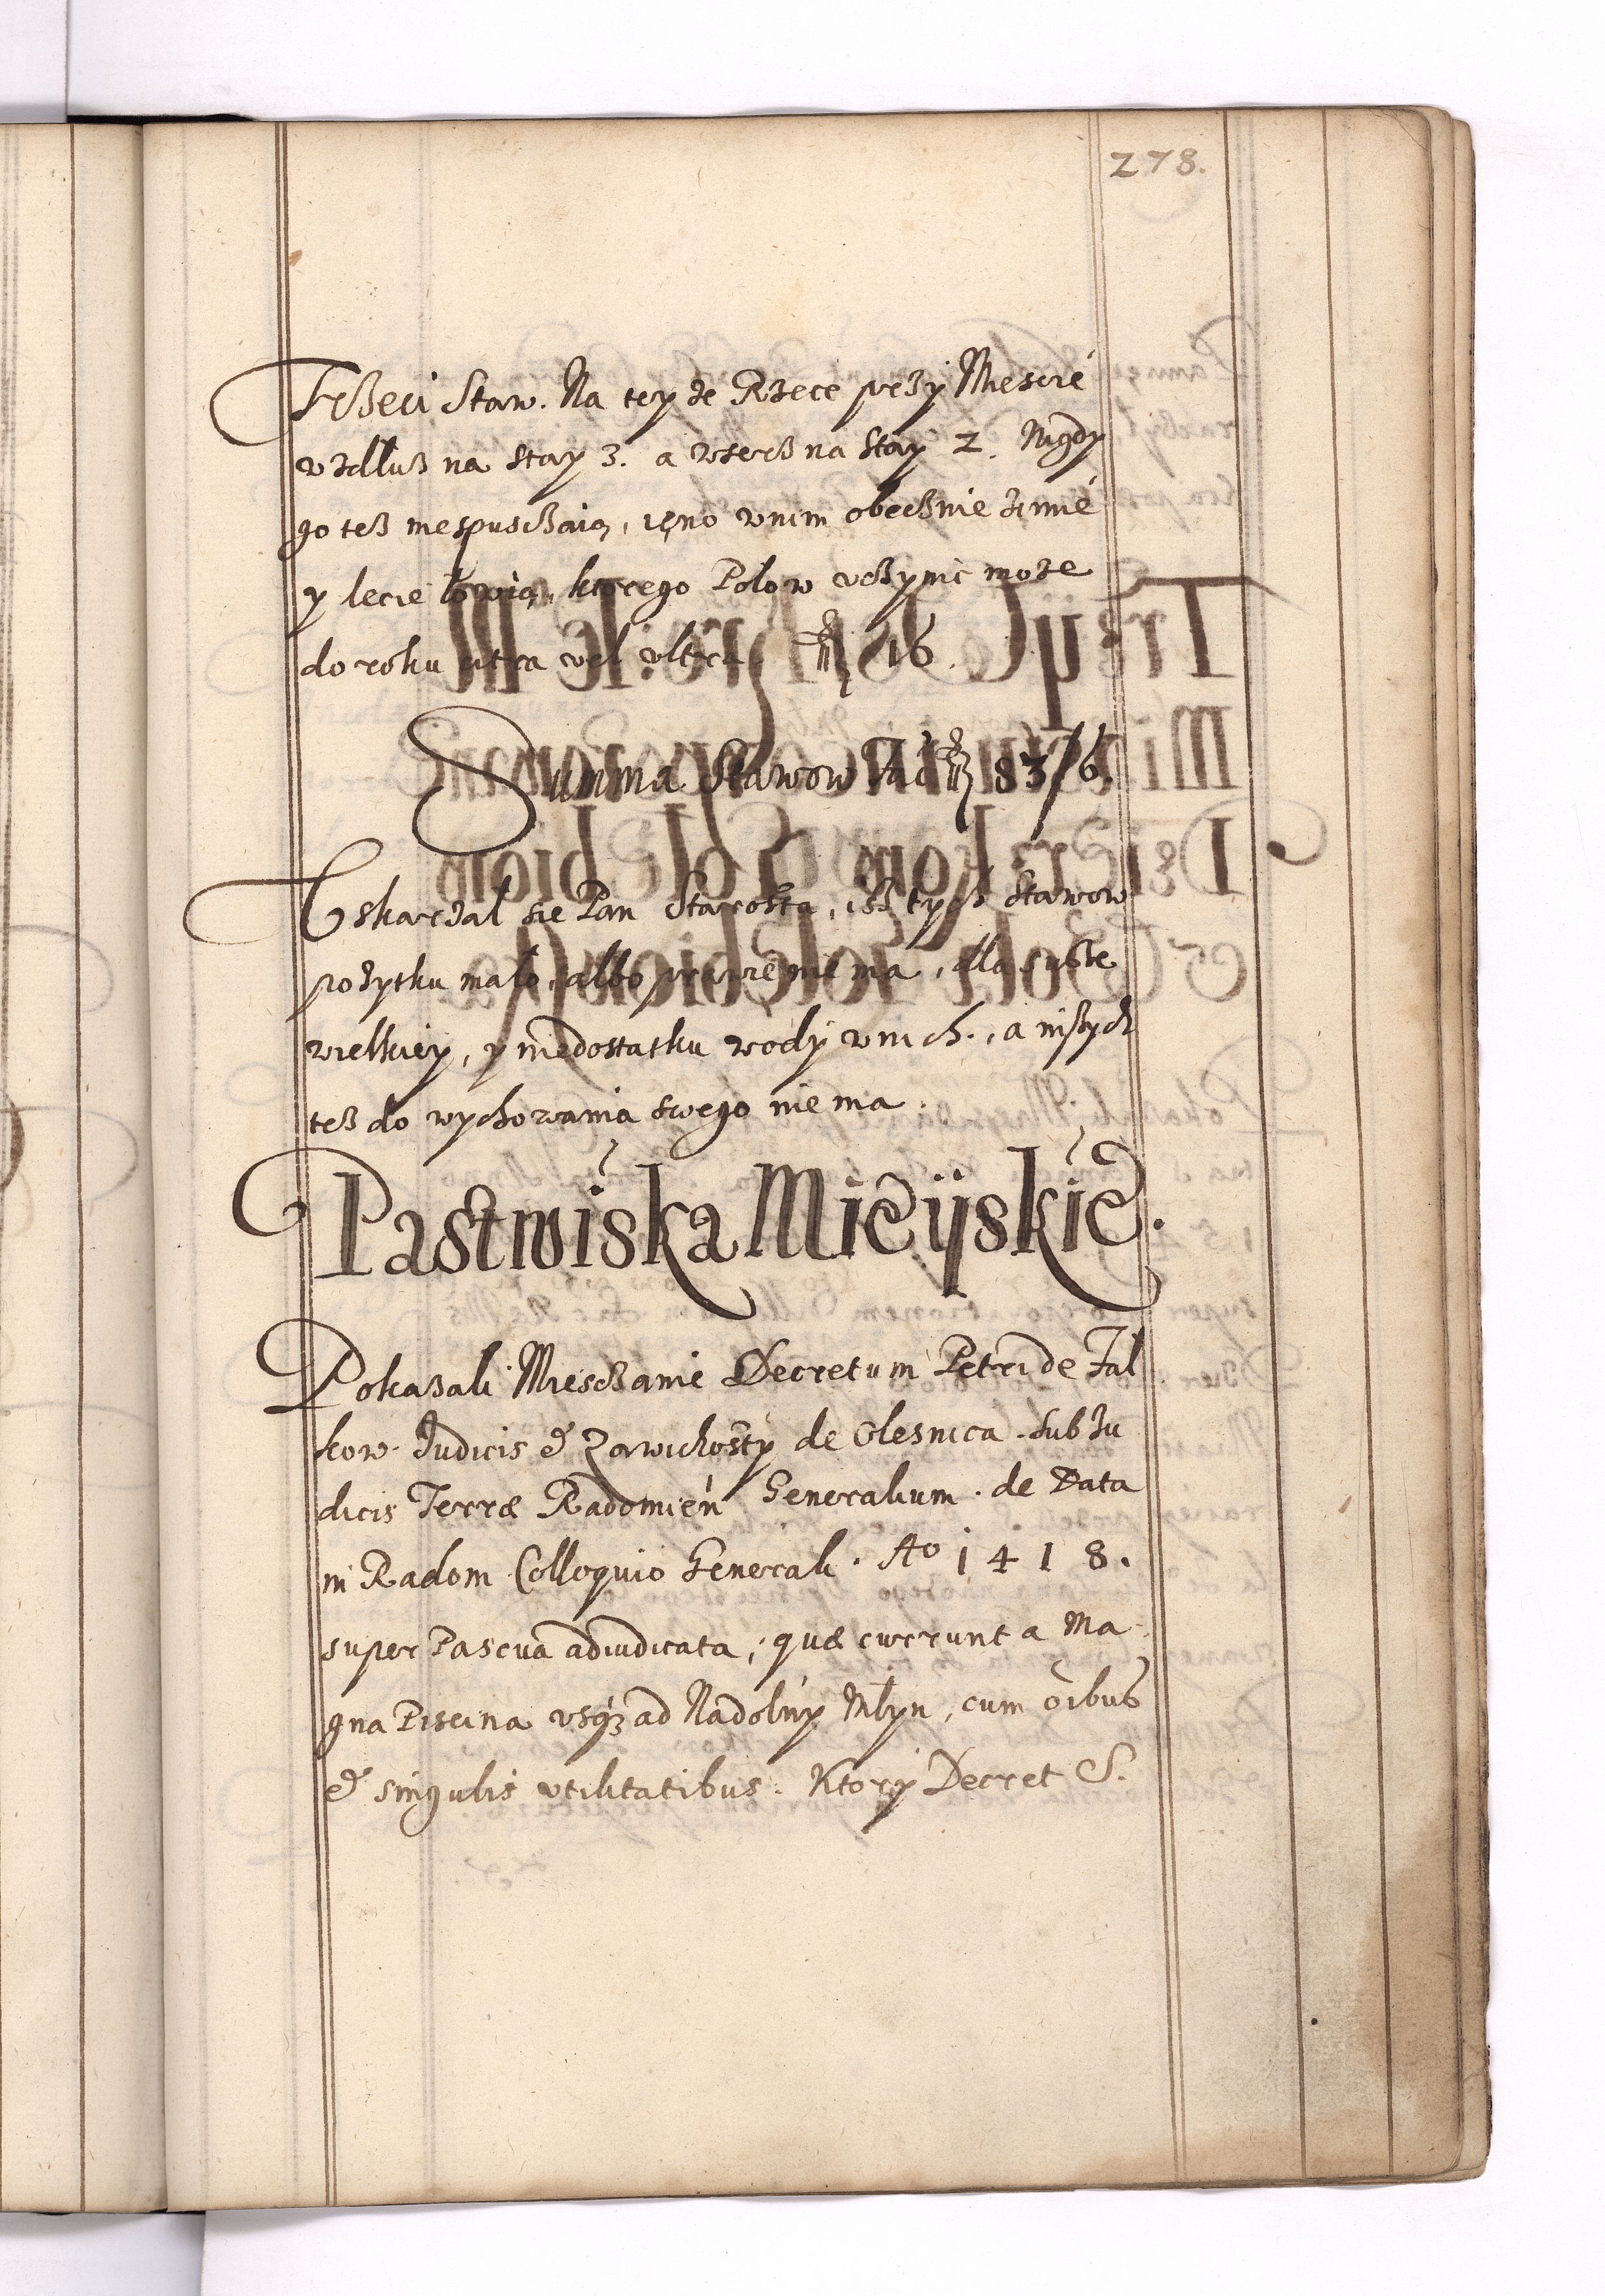 278.
Trßeci Staw. Na tey że Rzece prży Miescié
wzdlluß na stay 3. a wserß na Stay 2. Nigdy
go teß niespusczaią, ięno wnim obecznie zimié
y lecie łowią, ktorego Polow vczynic może
do roku citra vel vltra 16.
Summa Stawow Fac 83/6.
Uskarzal sie Pan Starosta, iß tych Stawow
pożytku malo, albo prawie nie ma, dla susze
wielkiey, y niedostatku wody w nich, a inßych
teß do wychowania swego nie ma.
Pastwiska Mieÿskie.
Pokazali Miesczanie Decretum Petri de Fal
kow Judicis & Zawichosty de Olesnica Sub Ju
dicis Terræ Radomień Generalium de Data
in Radom Colloquio Generali Ao 1418.
super Pascua adiudicata, quæ cucrunt a Ma
gna Piscina vsq3 ad Nadolny Młyn, cum oibus
& singulis vtilitatibus. Ktory Decret S.